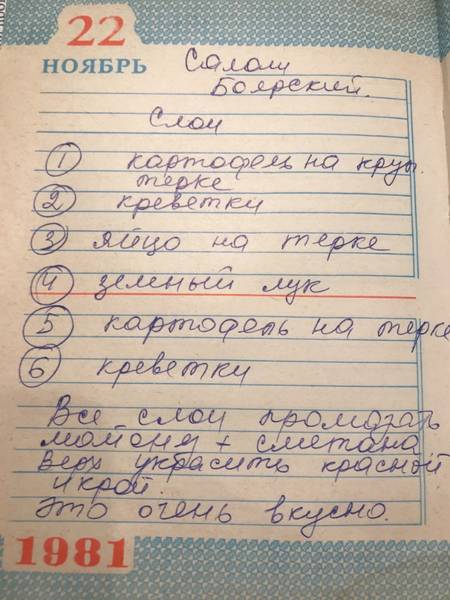 22
НОЯБРЬ
Салат
Боярский.
Слои
1 картофель на круп.
терке
2 креветки
3 яйцо на терке
4 зеленый лук
5 картофель на терке
6 креветки
Все слои промазать
майонез + сметана
Верх украсить красной
икрой.
Это очень вкусно.
1981